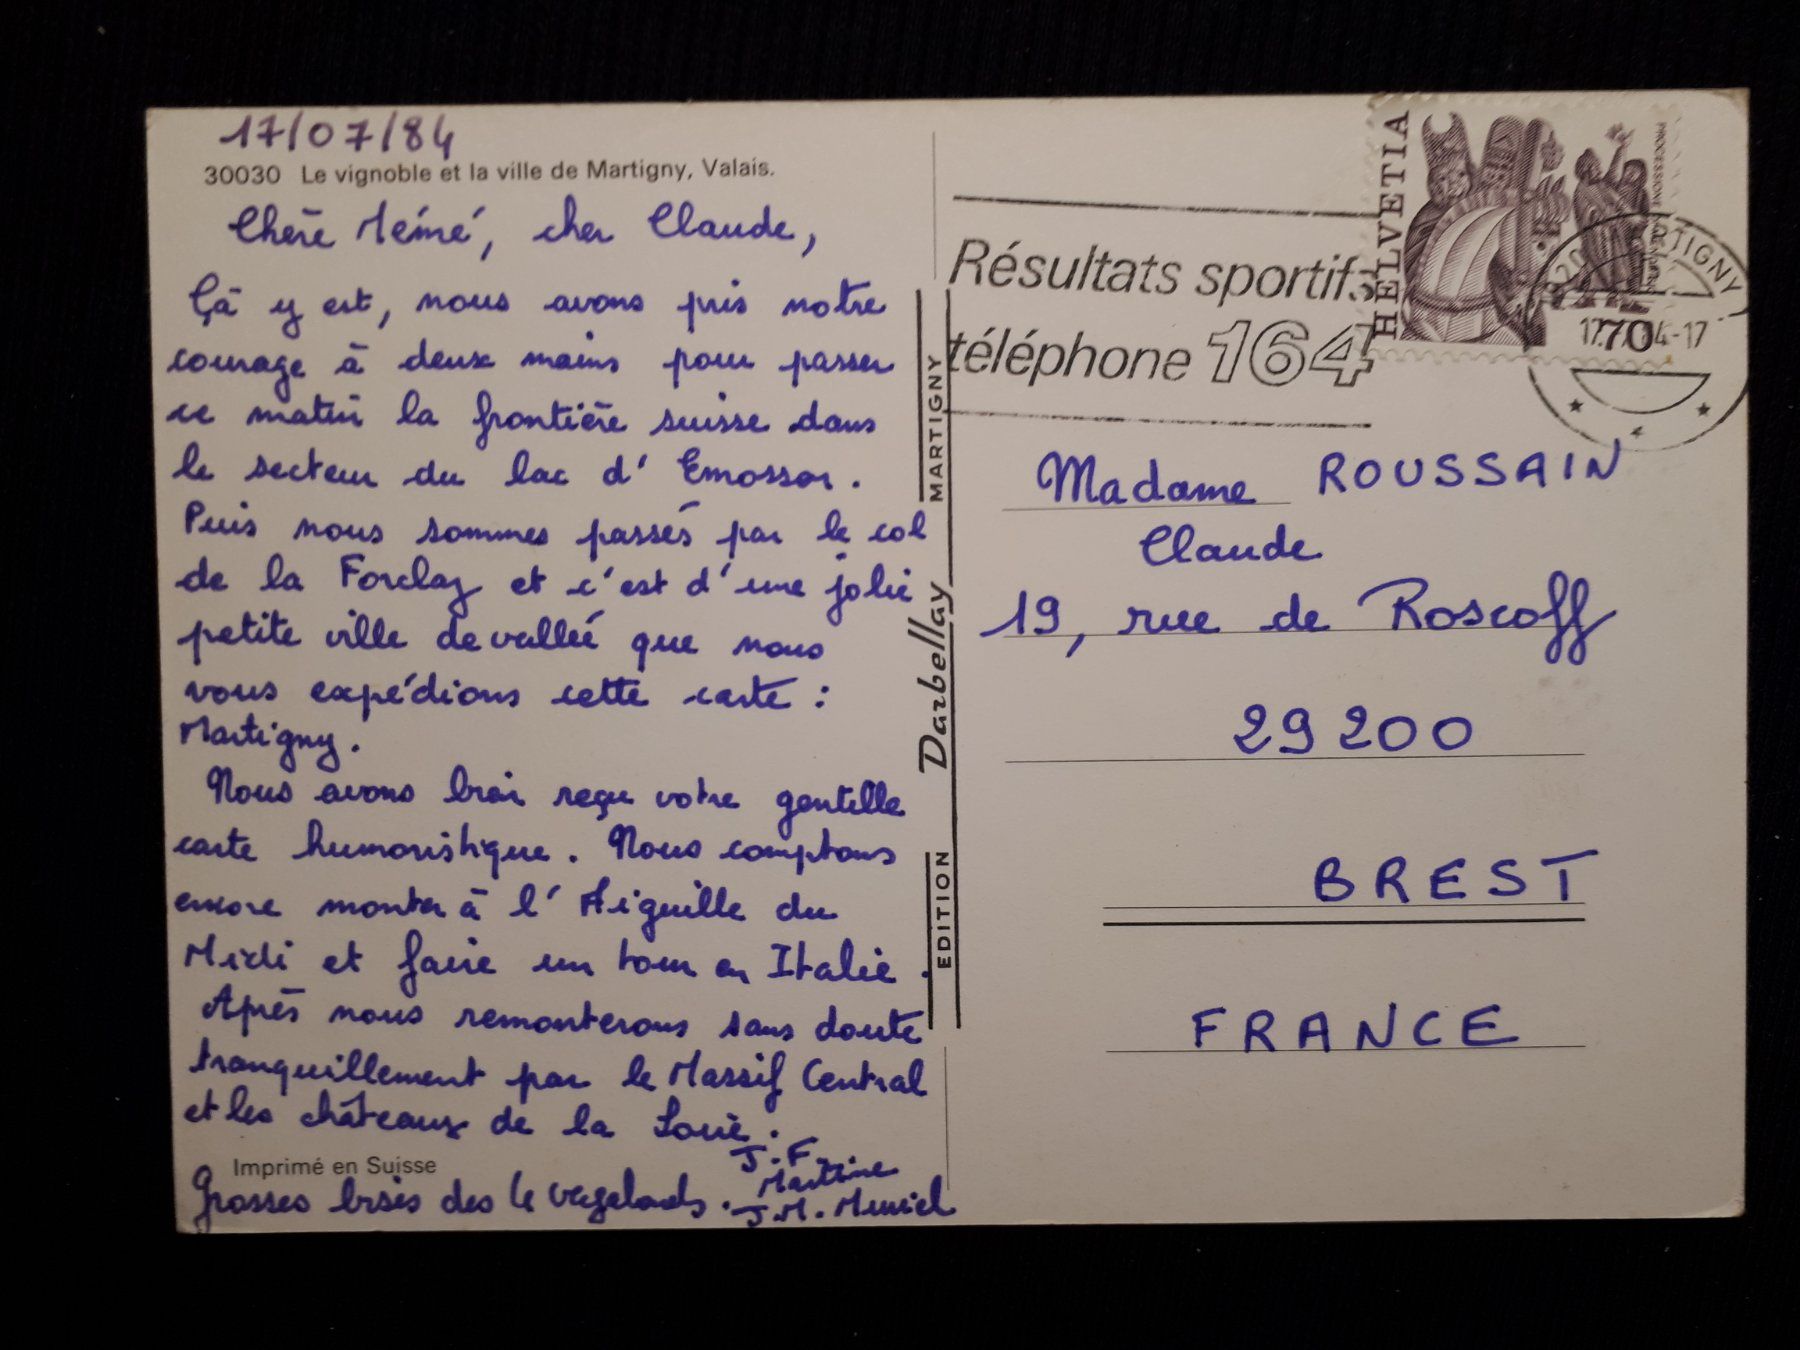 17/07/84
30030 Le vignoble et la ville de Martigny, Valais.
Chère Mémé, cher Claude,
Çà y est, nous avons pris notre
courage à deux mains pour passer
ce matin la frontière suisse dans
le secteur du lac d'Emosson.
Puis nous sommes passés par le col
de la Forclaz et c'est d'une jolie
petite ville de vallée que nous
vous expédions cette carte :
Martigny.
Nous avons bien reçu votre gentille
carte humoristique. Nous comptons
encore monter à l'Aiguille du
Midi et faire un tour en Italie.
Après nous remonterons sans doute
tranquillement par le Massif Central
et les châteaux de la Loire.
Imprimé en Suisse
Grosses bises des 4 vagabonds.
J.F.
Martine
J.M. Muriel
EDITION Darbellay MARTIGNY
Résultats sportifs
téléphone 164
HELVETIA
70
MARTIGNY
Madame ROUSSAIN
Claude
19, rue de Roscoff
29200
BREST
FRANCE